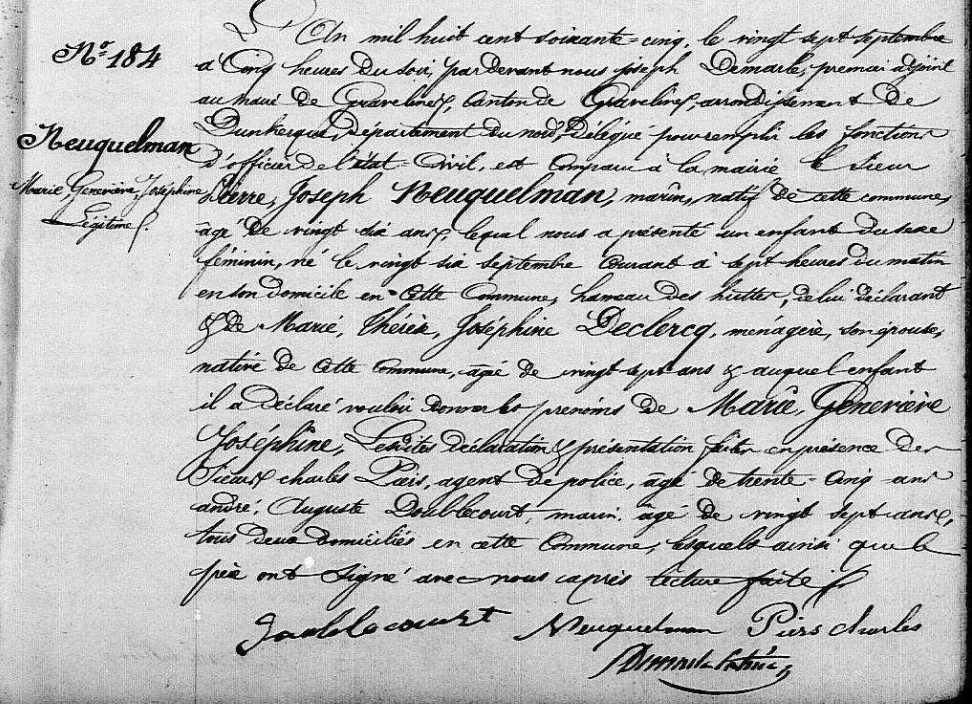 N.º 184
Neuquelman
Marie, Geneviève, Joséphine
Légitime.
L'An mil huit cent soixante-cinq, le vingt sept septembre
à Cinq heures du soir, pardevant nous joseph Demarle, premier adjoint
au maire de Gravelines, Canton de Gravelines, arrondissement de
Dunkerque, Département du nord, Délégué pour remplir les fonctions
d'officier de l'état-Civil, est Comparu à la mairie le Sieur
Pierre, Joseph Neuquelman, marin, natif de cette commune,
âgé de vingt six ans, lequel nous a présenté un enfant du sexe
féminin, né le vingt six septembre Courant à sept heures du matin
en son domicile en Cette Commune, hameau des huttes, de lui déclarant
& de Marie, Thérèse, Joséphine Declercq, ménagère, son épouse,
native de Cette Commune, agée de vingt sept ans & auquel enfant
il a Déclaré vouloir donner les prenoms de Marie, Geneviève
Joséphine, Lesdites déclaration & présentation faites en présence des
Sieurs charles Piers, agent de police, âgé de trente-Cinq ans
andré, Auguste Doublecourt, marin, âgé de vingt sept ans,
tous deux domiciliés en cette Commune, lesquels ainsi que le
père ont Signé avec nous après lecture faite.
Doublecourt Neuquelman Piers charles